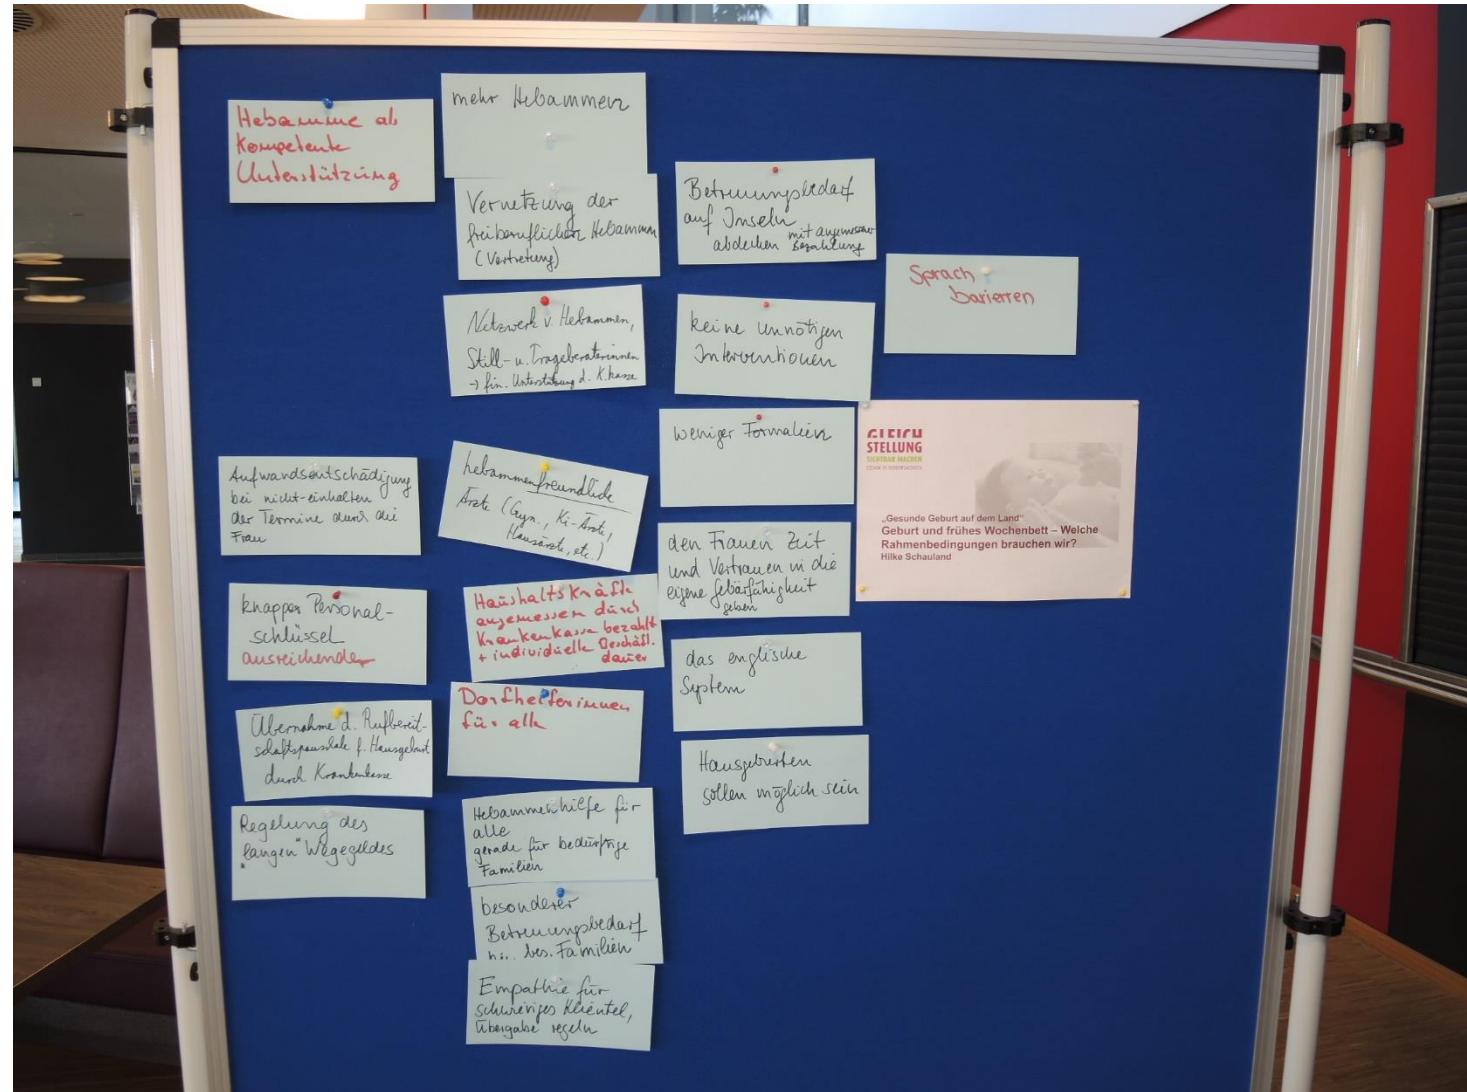 Hebamme als
kompetente
Unterstützung
Aufwandsentschädigung
bei nicht-einhalten
der Termine durch die
Frau
knapper Personal-
schlüssel
ausreichender
Übernahme d. Rufbereit-
schaftspauschale f. Hausgeburt
durch Krankenkasse
Regelung des
"langen" Wegegeldes
mehr Hebammen
Vernetzung der
freiberuflichen Hebammen
(Vertretung)
Netzwerk v. Hebammen,
Still- u. Trageberaterinnen
→ fin. Unterstützung d. K.kasse
hebammenfreundliche
Ärzte (Gyn., Ki-Ärzte,
Hausärzte, etc.)
Haushaltskräfte
angemessen durch
Krankenkasse bezahlt
+ individuelle Beschäft.
dauer
Dorfhelferinnen
für alle
Hebammenhilfe für
alle
gerade für bedürftige
Familien
besonderer
Betreuungsbedarf
bes. Familien
Empathie für
schwieriges Klientel,
Übergabe regeln
Betreuungsbedarf
auf Inseln
abdecken mit angemessener
Bezahlung
keine unnötigen
Interventionen
weniger Formalien
den Frauen Zeit
und Vertrauen in die
eigene Gebärfähigkeit
geben
das englische
System
Hausgeburten
sollen möglich sein
Sprach
barierren
GLEICH
STELLUNG
SICHTBAR MACHEN
„Gesunde Geburt auf dem Land“
Geburt und frühes Wochenbett – Welche
Rahmenbedingungen brauchen wir?
Hilke Schauland